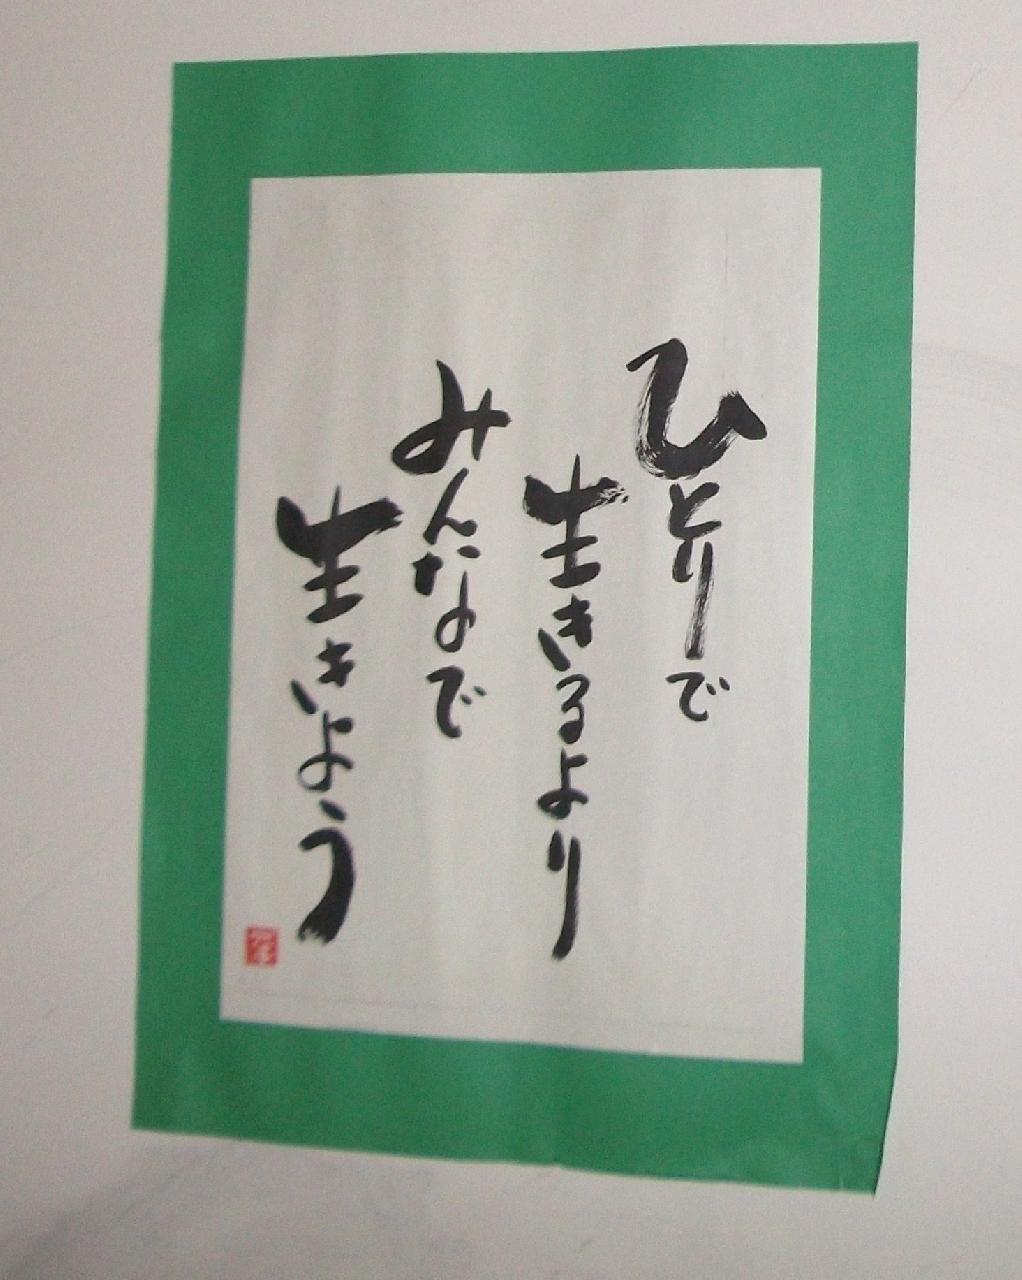 ひとりで
生きるより
みんなで
生きよう